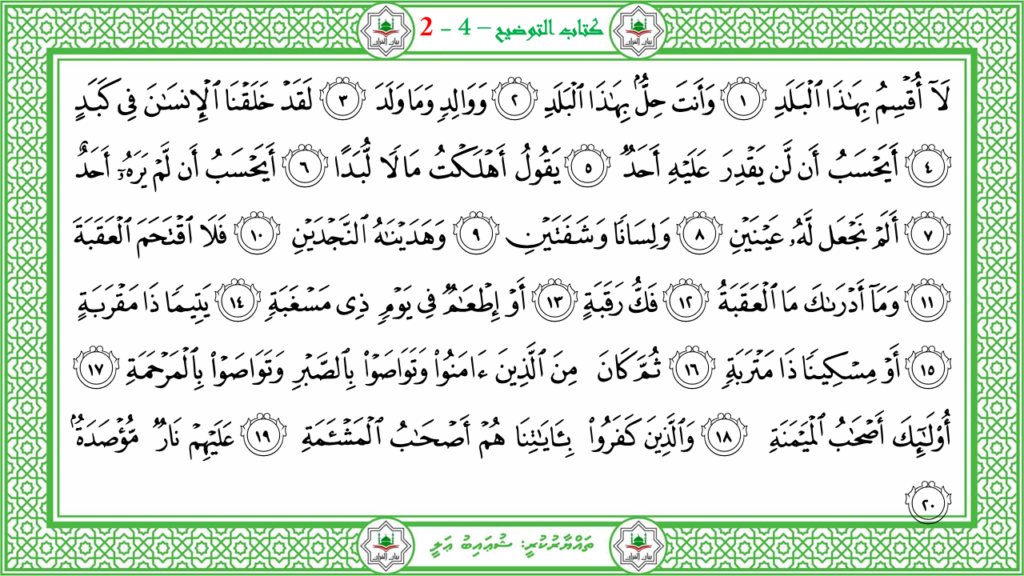 كتاب التوضيح – 4 - 2
لَآ أُقۡسِمُ بِهَٰذَا ٱلۡبَلَدِ ١ وَأَنتَ حِلُّۢ بِهَٰذَا ٱلۡبَلَدِ ٢ وَوَالِدٖ وَمَا وَلَدَ ٣ لَقَدۡ خَلَقۡنَا ٱلۡإِنسَٰنَ فِي كَبَدٍ
٤ أَيَحۡسَبُ أَن لَّن يَقۡدِرَ عَلَيۡهِ أَحَدٞ ٥ يَقُولُ أَهۡلَكۡتُ مَالٗا لُّبَدًا ٦ أَيَحۡسَبُ أَن لَّمۡ يَرَهُۥٓ أَحَدٌ
٧ أَلَمۡ نَجۡعَل لَّهُۥ عَيۡنَيۡنِ ٨ وَلِسَانٗا وَشَفَتَيۡنِ ٩ وَهَدَيۡنَٰهُ ٱلنَّجۡدَيۡنِ ١٠ فَلَا ٱقۡتَحَمَ ٱلۡعَقَبَةَ
١١ وَمَآ أَدۡرَىٰكَ مَا ٱلۡعَقَبَةُ ١٢ فَكُّ رَقَبَةٍ ١٣ أَوۡ إِطۡعَٰمٞ فِي يَوۡمٖ ذِي مَسۡغَبَةٖ ١٤ يَتِيمٗا ذَا مَقۡرَبَةٍ
١٥ أَوۡ مِسۡكِينٗا ذَا مَتۡرَبَةٖ ١٦ ثُمَّ كَانَ مِنَ ٱلَّذِينَ ءَامَنُواْ وَتَوَاصَوۡاْ بِٱلصَّبۡرِ وَتَوَاصَوۡاْ بِٱلۡمَرۡحَمَةِ ١٧
أُوْلَٰٓئِكَ أَصۡحَٰبُ ٱلۡمَيۡمَنَةِ ١٨ وَٱلَّذِينَ كَفَرُواْ بِـَٔايَٰتِنَا هُمۡ أَصۡحَٰبُ ٱلۡمَشۡـَٔمَةِ ١٩ عَلَيۡهِمۡ نَارٞ مُّؤۡصَدَةُۢ
٢٠
ތައްޔާރުކުރީ: ޝުޢައިބު ޢަލީ